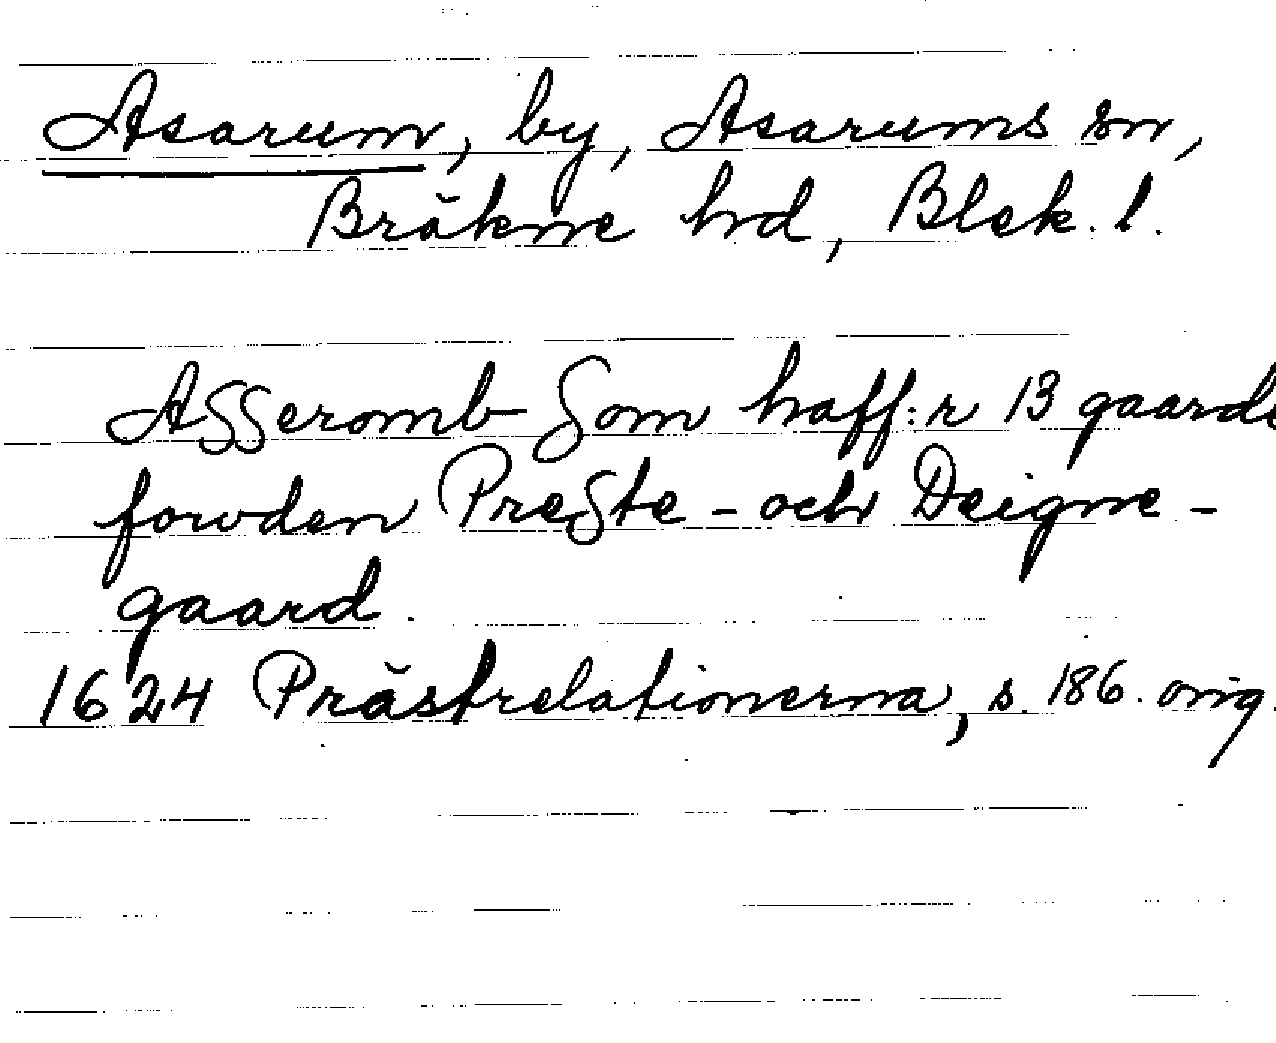 Asarum, by, Asarums sn,
Bräkne hd, Blek. l.
Asseromb som haff:r 13 gaarde
fowden Preste - och Deigne -
gaard.
1624 Prästrelationerna, s. 186. orig.